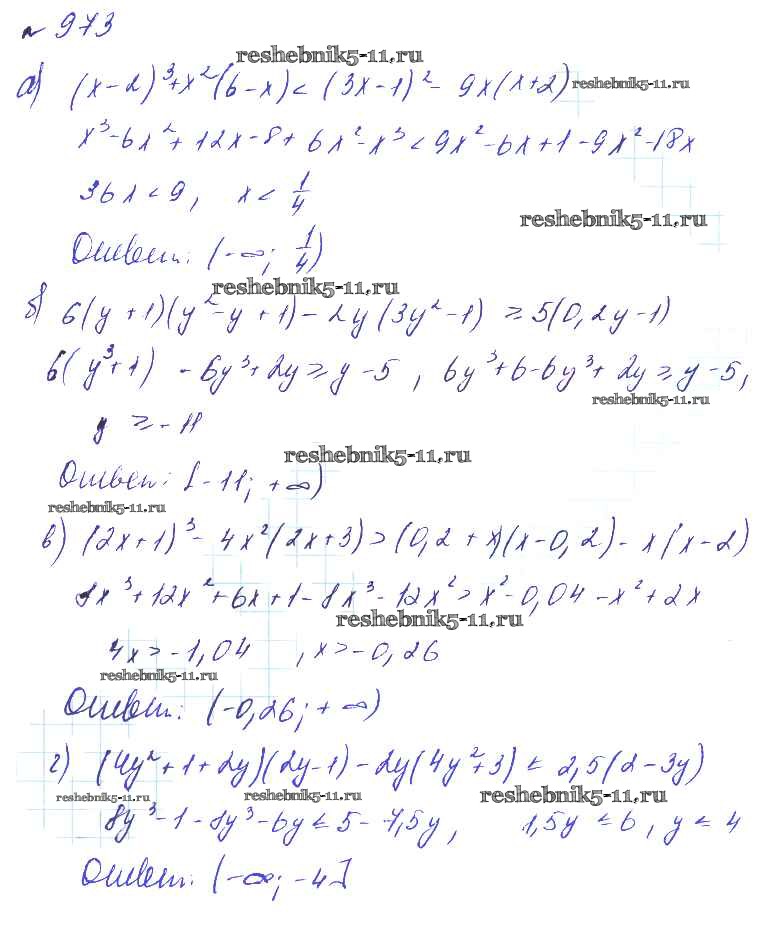 № 973
reshebnik5-11.ru
а) (x-2)³+x²(6-x) < (3x-1)² - 9x(x+2)
reshebnik5-11.ru
x³-6x²+12x-8+6x²-x³<9x²-6x+1-9x²-18x
36x<9, x< 1/4
reshebnik5-11.ru
Ответ: (-∞; 1/4)
reshebnik5-11.ru
б) 6(y+1)(y²-y+1)-2y(3y²-1) ≥ 5(0,2y-1)
6(y³+1) -6y³+2y ≥ y-5, 6y³+6-6y³+2y ≥ y-5,
reshebnik5-11.ru
y ≥ -11
reshebnik5-11.ru
Ответ: [-11; +∞)
reshebnik5-11.ru
в) (2x+1)³- 4x²(2x+3)>(0,2+x)(x-0,2)-x(x-2)
8x³+12x²+6x+1-8x³-12x²>x²-0,04-x²+2x
reshebnik5-11.ru
4x>-1,04 , x>-0,26
reshebnik5-11.ru
Ответ: (-0,26; +∞)
г) (4y²+1+2y)(2y-1)-2y(4y²+3) ≤ 2,5(2-3y)
reshebnik5-11.ru reshebnik5-11.ru reshebnik5-11.ru
8y³-1-8y³-6y ≤ 5-7,5y, 1,5y ≤ 6, y ≤ 4
Ответ: (-∞; -4]